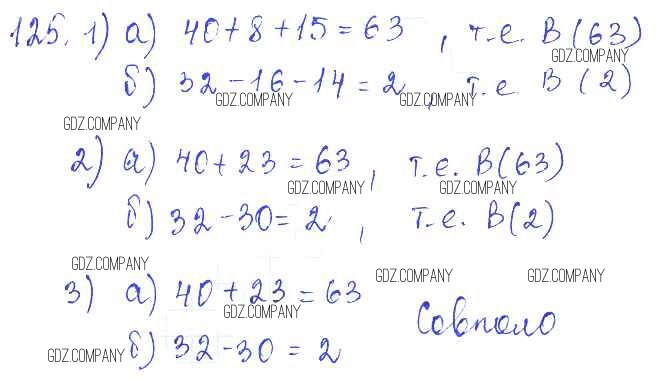 125. 1) а) 40+8+15=63, т.е. В(63)
GDZ.COMPANY
б) 32-16-14=2, т.е. В(2)
GDZ.COMPANY GDZ.COMPANY
GDZ.COMPANY
2) а) 40+23=63, т.е. В(63)
GDZ.COMPANY GDZ.COMPANY
б) 32-30=2, т.е. В(2)
GDZ.COMPANY
GDZ.COMPANY GDZ.COMPANY
3) а) 40+23=63
GDZ.COMPANY
Совпало
б) 32-30=2
GDZ.COMPANY